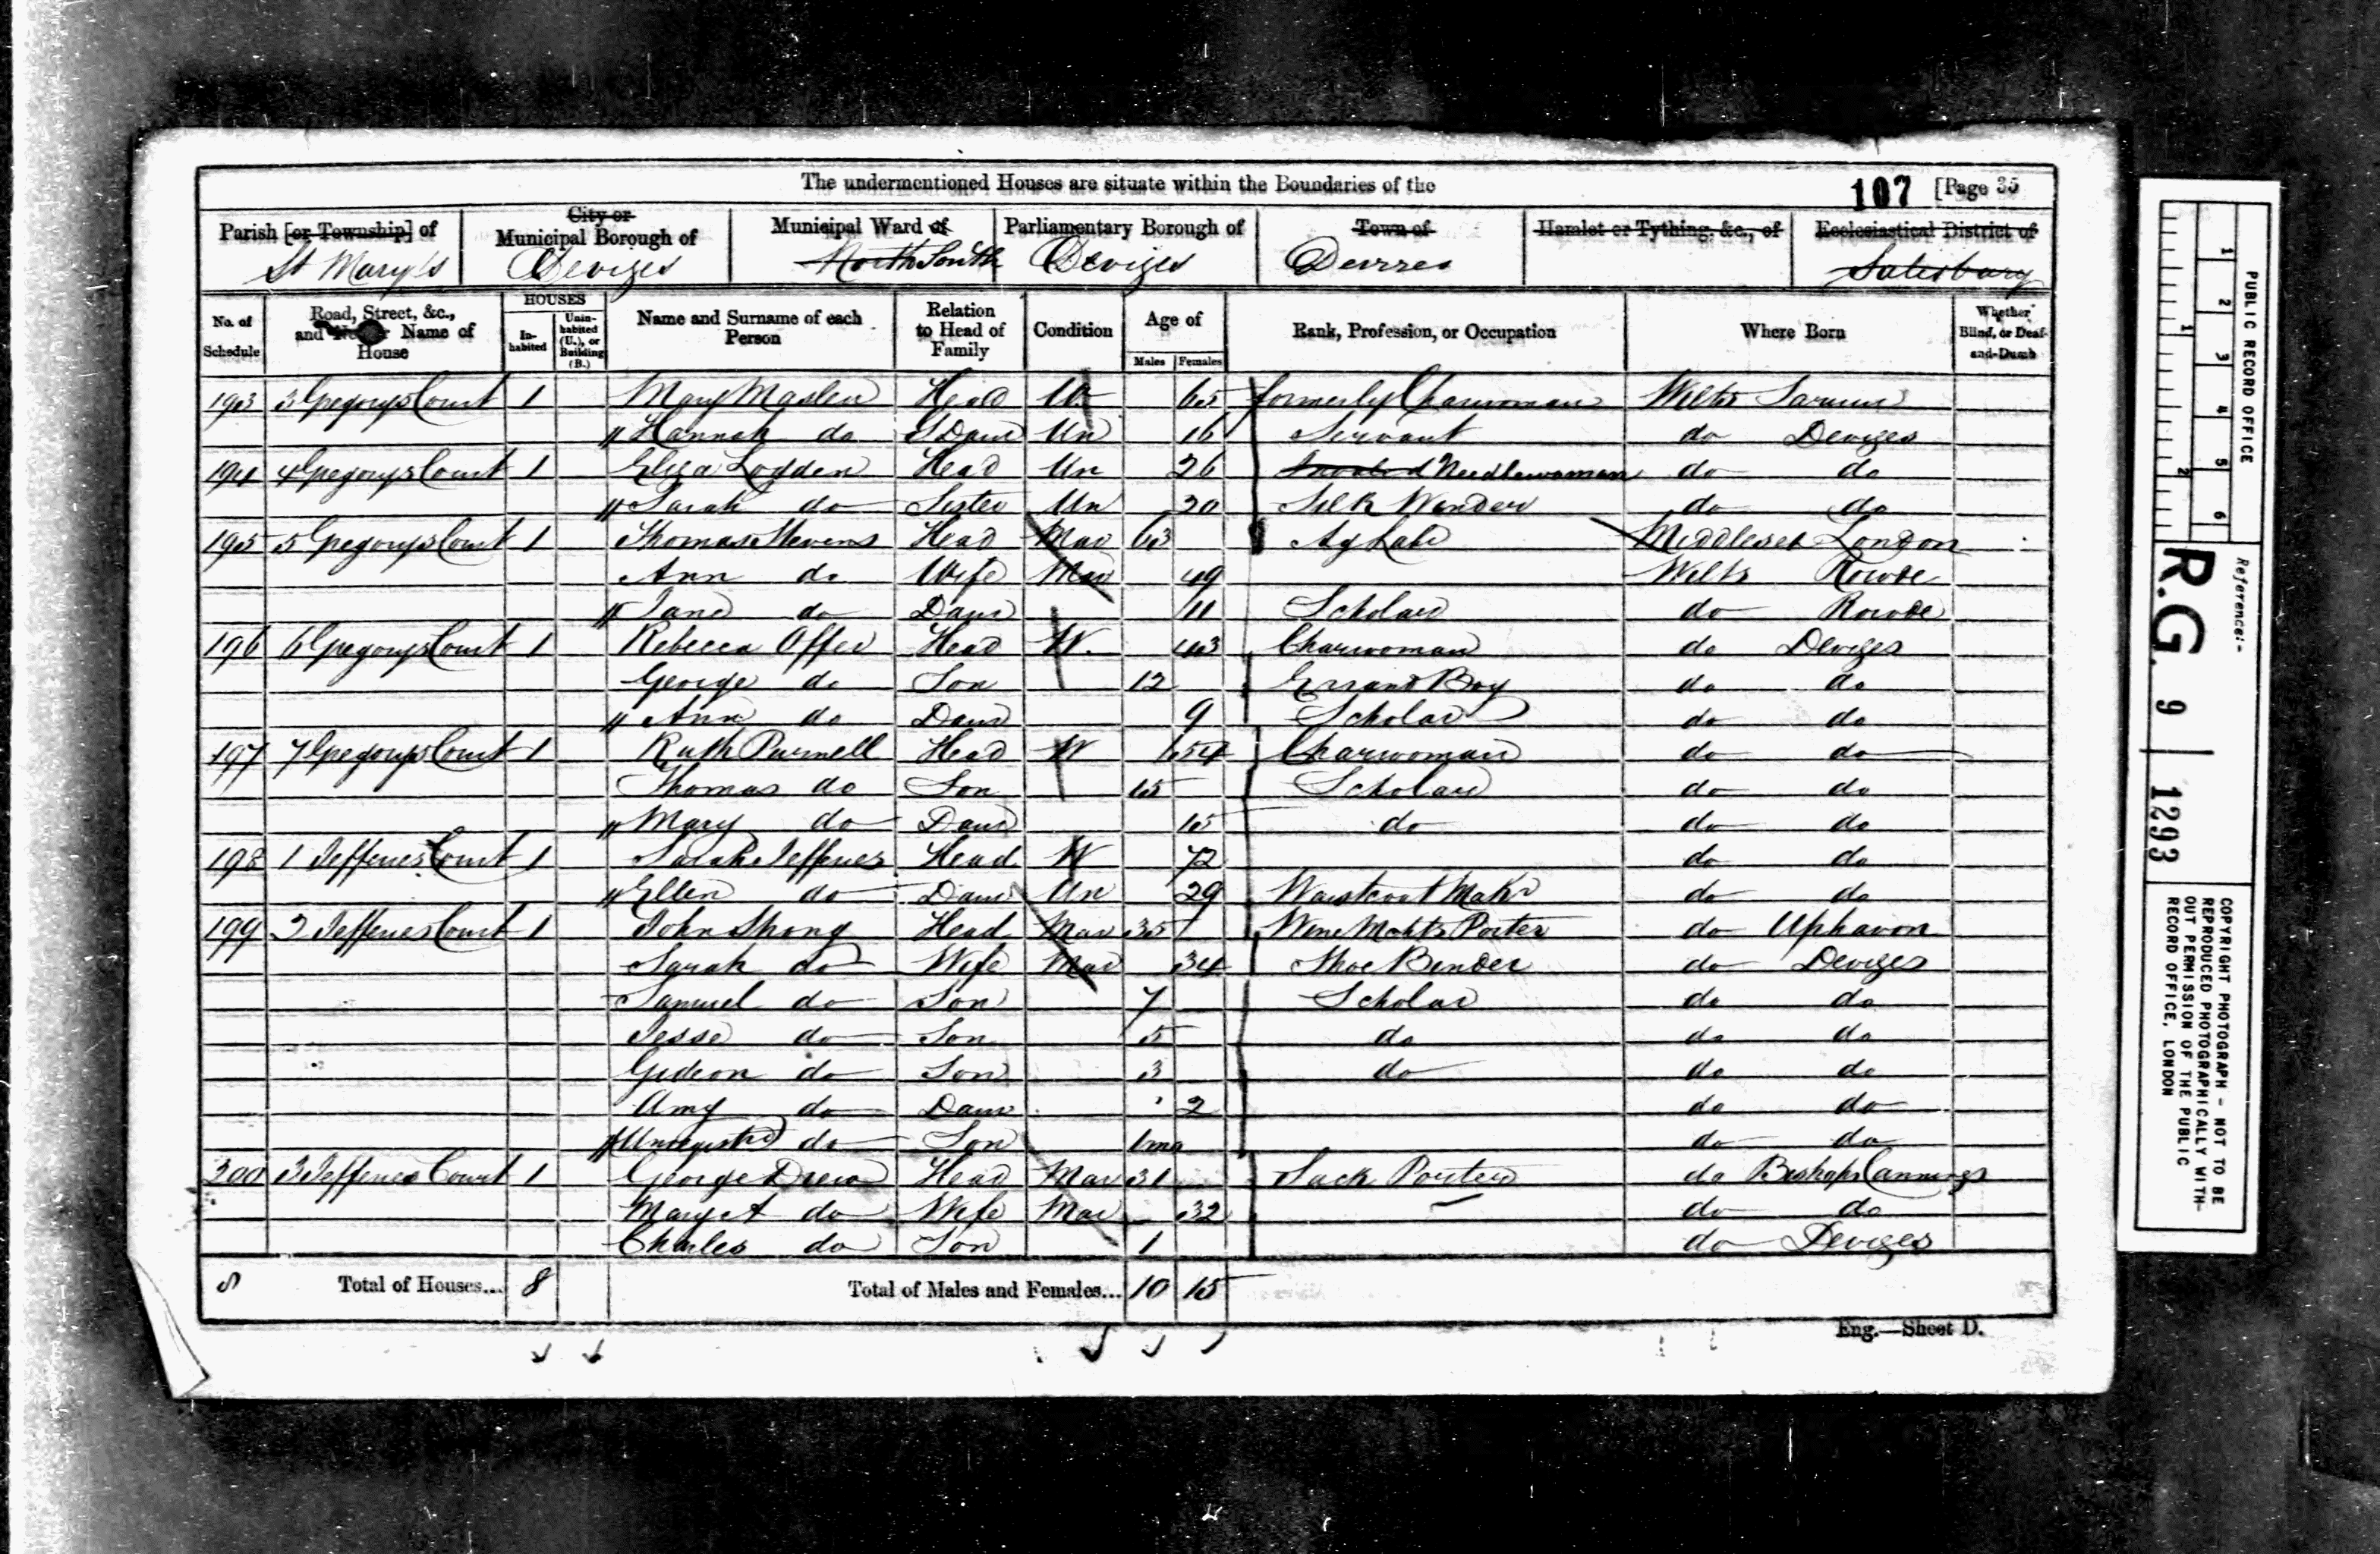 The undermentioned Houses are situate within the Boundaries of the
107 [Page 35
Parish [or Township] of St Mary's
City or Municipal Borough of Devizes
Municipal Ward of North South
Parliamentary Borough of Devizes
Town of Devizes
Hamlet or Tything, &c., of
Ecclesiastical District of Salisbury
No. of Schedule | Road, Street, &c., and Name of House | HOUSES Inhabited | Uninhabited (U.), or Building (B.) | Name and Surname of each Person | Relation to Head of Family | Condition | Age of Males | Females | Rank, Profession, or Occupation | Where Born | Whether Blind, or Deaf-and-Dumb
193 3 Gregorys Court 1 Mary Maslen Head 65 formerly Charwoman Wilts Sarum
Hannah do G Daur Un 16 Servant do Devizes
194 4 Gregorys Court 1 Eliza Lodden Head Un 26 Needlewoman do do
Sarah do Sister Un 20 Silk Winder do do
195 5 Gregorys Court 1 Thomas Stevens Head Mar 63 Ag Lab Middlesex London
Ann do Wife Mar 49 Wilts Rowde
Jane do Daur 11 Scholar do Rowde
196 6 Gregorys Court 1 Rebecca Offer Head W. 43 Charwoman do Devizes
George do Son 12 Errand Boy do do
Ann do Daur 9 Scholar do do
197 7 Gregorys Court 1 Ruth Purnell Head W 54 Charwoman do do
Thomas do Son 15 Scholar do do
Mary do Daur 15 do do do
198 1 Jefferies Court 1 Sarah Jefferies Head W 72 do do
Ellen do Daur Un 29 Waistcoat Makr do do
199 2 Jefferies Court 1 John Strong Head Mar 35 Wine Mchts Porter do Uphavon
Sarah do Wife Mar 34 Shoe Binder do Devizes
Samuel do Son 7 Scholar do do
Jesse do Son 5 do do do
Gideon do Son 3 do do do
Amy do Daur 2 do do
Unregistrd do Son 1 mo do do
200 3 Jefferies Court 1 George Drew Head Mar 31 Sack Porter do Bishops Cannings
Margt do Wife Mar 32 do do
Charles do Son 1 do Devizes
8 Total of Houses... 8 Total of Males and Females... 10 15
Eng.—Sheet D.
1 2 3 4 5 6
1 2
PUBLIC RECORD OFFICE
Reference:-
R.G. 9 | 1293
COPYRIGHT PHOTOGRAPH - NOT TO BE
REPRODUCED PHOTOGRAPHICALLY WITH-
OUT PERMISSION OF THE PUBLIC
RECORD OFFICE, LONDON